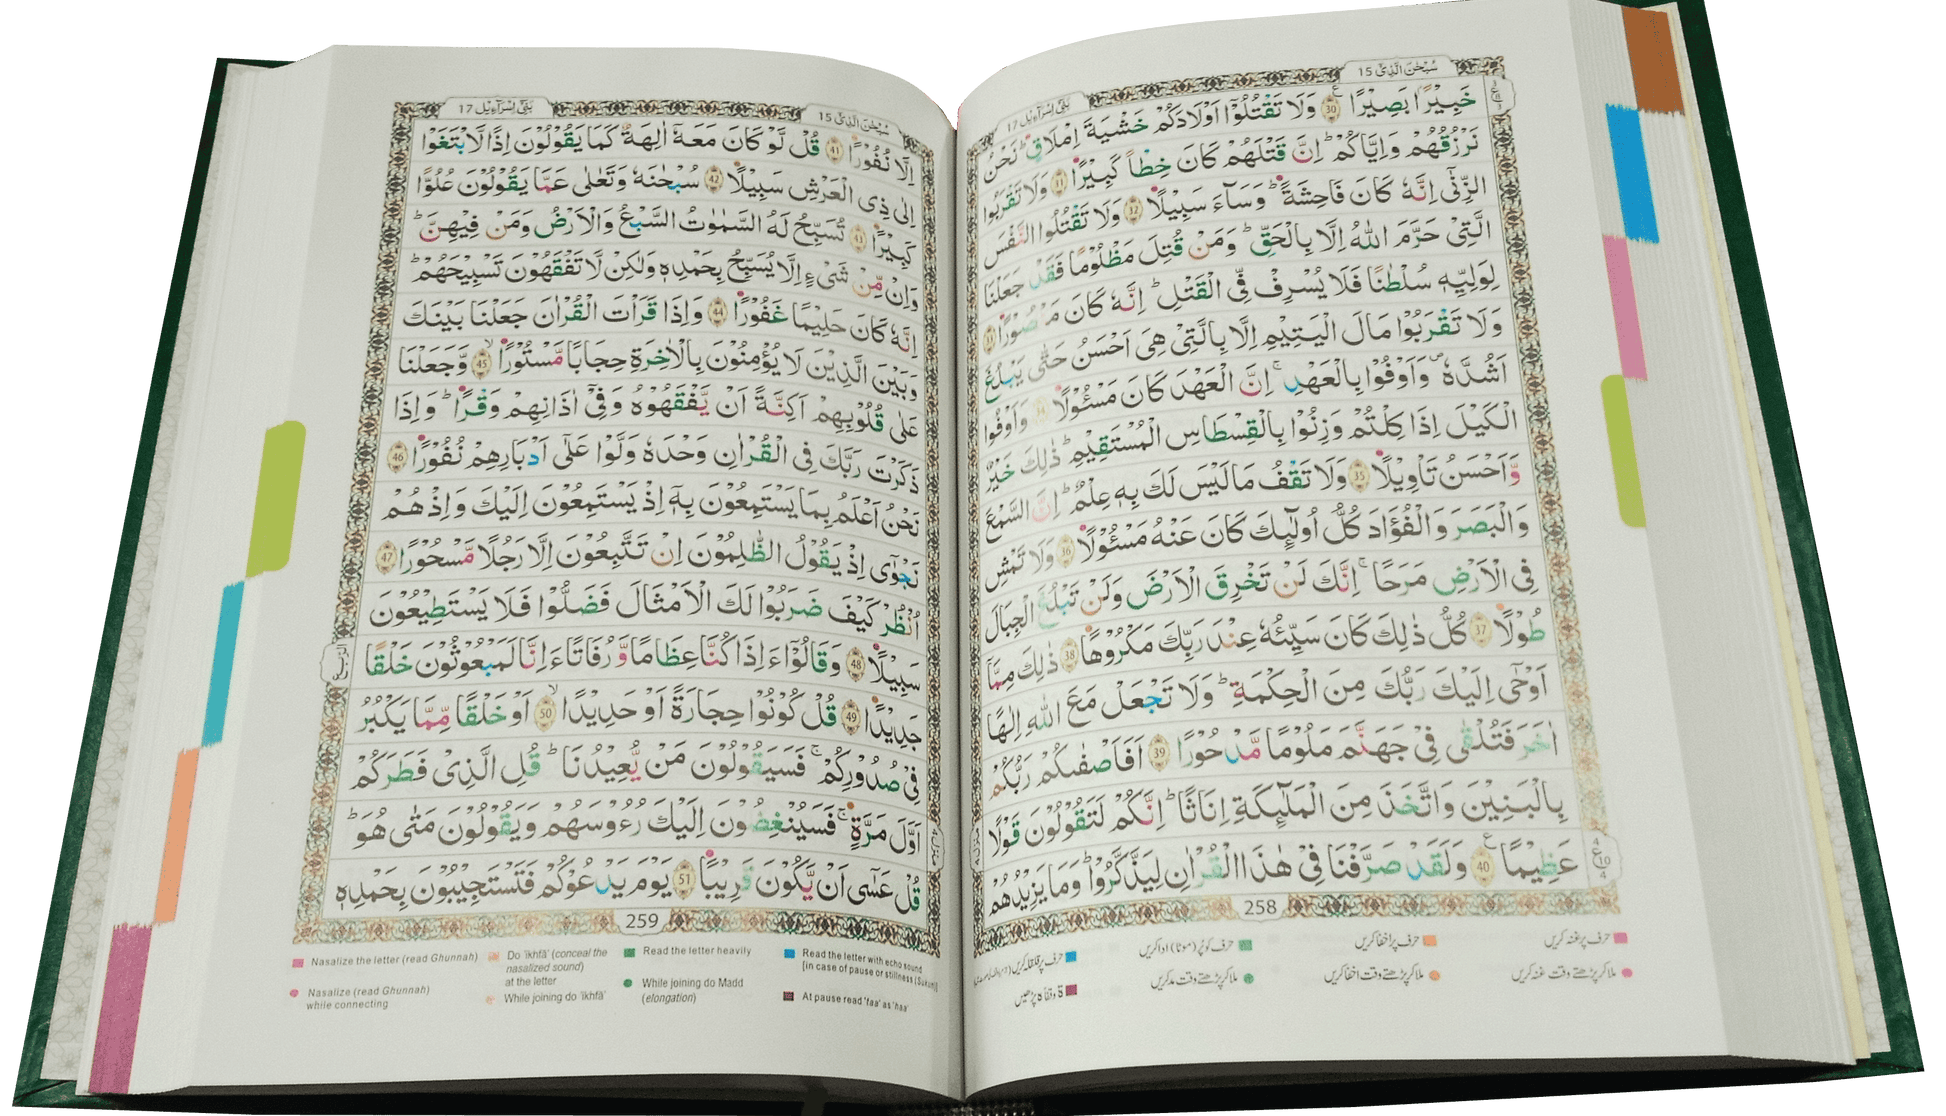 سُبْحٰنَ الَّذِیْۤ 15
بَنِیْۤ اِسْرَآءِیْل 17
خَبِیْرًۢا بَصِیْرًا ﴿30﴾ وَلَا تَقْتُلُوْۤا اَوْلَادَكُمْ خَشْیَةَ اِمْلَاقٍ ؕ نَحْنُ
نَرْزُقُهُمْ وَاِیَّاكُمْ ؕ اِنَّ قَتْلَهُمْ كَانَ خِطْاً كَبِیْرًا ﴿31﴾ وَلَا تَقْرَبُوا
الزِّنٰۤی اِنَّهٗ كَانَ فَاحِشَةً ؕ وَسَآءَ سَبِیْلًا ﴿32﴾ وَلَا تَقْتُلُوا النَّفْسَ
الَّتِیْ حَرَّمَ اللّٰهُ اِلَّا بِالْحَقِّ ؕ وَمَنْ قُتِلَ مَظْلُوْمًا فَقَدْ جَعَلْنَا
لِوَلِیِّهٖ سُلْطٰنًا فَلَا یُسْرِفْ فِّی الْقَتْلِ ؕ اِنَّهٗ كَانَ مَنْصُوْرًا ﴿33﴾
وَلَا تَقْرَبُوْا مَالَ الْیَتِیْمِ اِلَّا بِالَّتِیْ هِیَ اَحْسَنُ حَتّٰی یَبْلُغَ
اَشُدَّهٗ ۪ وَاَوْفُوْا بِالْعَهْدِ ۚ اِنَّ الْعَهْدَ كَانَ مَسْـُٔوْلًا ﴿34﴾ وَاَوْفُوا
الْكَیْلَ اِذَا كِلْتُمْ وَزِنُوْا بِالْقِسْطَاسِ الْمُسْتَقِیْمِ ؕ ذٰلِكَ خَیْرٌ
وَّاَحْسَنُ تَاْوِیْلًا ﴿35﴾ وَلَا تَقْفُ مَا لَیْسَ لَكَ بِهٖ عِلْمٌ ؕ اِنَّ السَّمْعَ
وَالْبَصَرَ وَالْفُؤَادَ كُلُّ اُولٰٓئِكَ كَانَ عَنْهُ مَسْـُٔوْلًا ﴿36﴾ وَلَا تَمْشِ
فِی الْاَرْضِ مَرَحًا ۚ اِنَّكَ لَنْ تَخْرِقَ الْاَرْضَ وَلَنْ تَبْلُغَ الْجِبَالَ
طُوْلًا ﴿37﴾ كُلُّ ذٰلِكَ كَانَ سَیِّئُهٗ عِنْدَ رَبِّكَ مَكْرُوْهًا ﴿38﴾ ذٰلِكَ مِمَّاۤ
اَوْحٰۤی اِلَیْكَ رَبُّكَ مِنَ الْحِكْمَةِ ؕ وَلَا تَجْعَلْ مَعَ اللّٰهِ اِلٰهًا
اٰخَرَ فَتُلْقٰی فِیْ جَهَنَّمَ مَلُوْمًا مَّدْحُوْرًا ﴿39﴾ اَفَاَصْفٰىكُمْ رَبُّكُمْ
بِالْبَنِیْنَ وَاتَّخَذَ مِنَ الْمَلٰٓئِكَةِ اِنَاثًا ؕ اِنَّكُمْ لَتَقُوْلُوْنَ قَوْلًا
عَظِیْمًا ﴿40﴾ وَلَقَدْ صَرَّفْنَا فِیْ هٰذَا الْقُرْاٰنِ لِیَذَّكَّرُوْا ؕ وَمَا یَزِیْدُهُمْ
258
حرف پر غنہ کریں
حرف پر اخفا کریں
حرف کو پُر (موٹا) ادا کریں
حرف پر قلقلہ کریں
ملا کر پڑھتے وقت غنہ کریں
ملا کر پڑھتے وقت اخفا کریں
ملا کر پڑھتے وقت مد کریں
ۃ وقفاً ہ پڑھیں
سُبْحٰنَ الَّذِیْۤ 15
بَنِیْۤ اِسْرَآءِیْل 17
اِلَّا نُفُوْرًا ﴿41﴾ قُلْ لَّوْ كَانَ مَعَهٗۤ اٰلِهَةٌ كَمَا یَقُوْلُوْنَ اِذًا لَّابْتَغَوْا
اِلٰی ذِی الْعَرْشِ سَبِیْلًا ﴿42﴾ سُبْحٰنَهٗ وَتَعٰلٰی عَمَّا یَقُوْلُوْنَ عُلُوًّا
كَبِیْرًا ﴿43﴾ تُسَبِّحُ لَهُ السَّمٰوٰتُ السَّبْعُ وَالْاَرْضُ وَمَنْ فِیْهِنَّ ؕ
وَاِنْ مِّنْ شَیْءٍ اِلَّا یُسَبِّحُ بِحَمْدِهٖ وَلٰكِنْ لَّا تَفْقَهُوْنَ تَسْبِیْحَهُمْ ؕ
اِنَّهٗ كَانَ حَلِیْمًا غَفُوْرًا ﴿44﴾ وَاِذَا قَرَاْتَ الْقُرْاٰنَ جَعَلْنَا بَیْنَكَ
وَبَیْنَ الَّذِیْنَ لَا یُؤْمِنُوْنَ بِالْاٰخِرَةِ حِجَابًا مَّسْتُوْرًا ﴿45﴾ ۙ وَّجَعَلْنَا
عَلٰی قُلُوْبِهِمْ اَكِنَّةً اَنْ یَّفْقَهُوْهُ وَفِیْۤ اٰذَانِهِمْ وَقْرًا ؕ وَاِذَا
ذَكَرْتَ رَبَّكَ فِی الْقُرْاٰنِ وَحْدَهٗ وَلَّوْا عَلٰۤی اَدْبَارِهِمْ نُفُوْرًا ﴿46﴾
نَحْنُ اَعْلَمُ بِمَا یَسْتَمِعُوْنَ بِهٖۤ اِذْ یَسْتَمِعُوْنَ اِلَیْكَ وَاِذْ هُمْ
نَجْوٰۤی اِذْ یَقُوْلُ الظّٰلِمُوْنَ اِنْ تَتَّبِعُوْنَ اِلَّا رَجُلًا مَّسْحُوْرًا ﴿47﴾
اُنْظُرْ كَیْفَ ضَرَبُوْا لَكَ الْاَمْثَالَ فَضَلُّوْا فَلَا یَسْتَطِیْعُوْنَ
سَبِیْلًا ﴿48﴾ وَقَالُوْۤا ءَاِذَا كُنَّا عِظَامًا وَّرُفَاتًا ءَاِنَّا لَمَبْعُوْثُوْنَ خَلْقًا
جَدِیْدًا ﴿49﴾ قُلْ كُوْنُوْا حِجَارَةً اَوْ حَدِیْدًا ﴿50﴾ ۙ اَوْ خَلْقًا مِّمَّا یَكْبُرُ
فِیْ صُدُوْرِكُمْ ۚ فَسَیَقُوْلُوْنَ مَنْ یُّعِیْدُنَا ؕ قُلِ الَّذِیْ فَطَرَكُمْ
اَوَّلَ مَرَّةٍ ۚ فَسَیُنْغِضُوْنَ اِلَیْكَ رُءُوْسَهُمْ وَیَقُوْلُوْنَ مَتٰی هُوَ ؕ
قُلْ عَسٰۤی اَنْ یَّكُوْنَ قَرِیْبًا ﴿51﴾ یَوْمَ یَدْعُوْكُمْ فَتَسْتَجِیْبُوْنَ بِحَمْدِهٖ
الرُّبع
259
Nasalize the letter (read Ghunnah)
Do 'ikhfã' (conceal the
nasalized sound)
at the letter
Read the letter heavily
Read the letter with echo sound
(in case of pause or stillness (Sukun))
Nasalize (read Ghunnah)
while connecting
While joining do 'ikhfã'
While joining do Madd
(elongation)
At pause read 'taa' as 'haa'